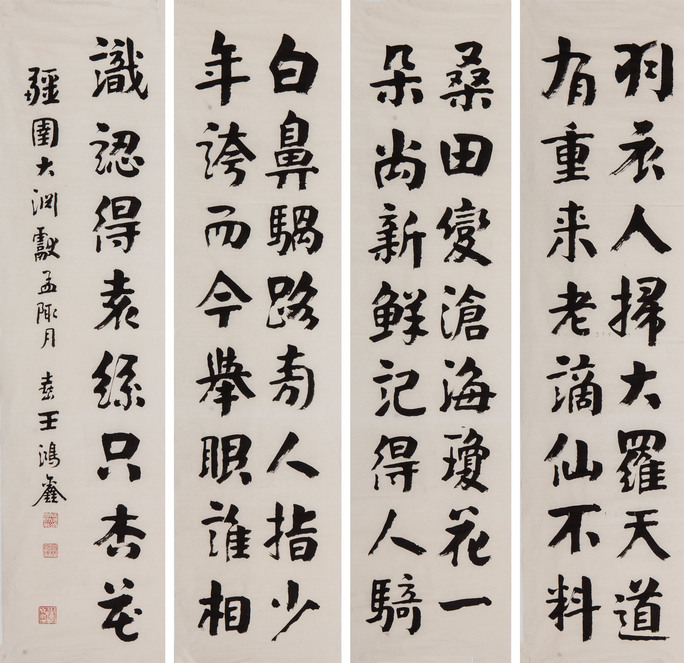 羽衣人掃大羅天道
有重来老謫仙不料
桑田變滄海瓊花一
朵尚新鮮記得人騎
白鼻騧路旁人指少
年誇而今舉眼誰相
識認得袁絲只杏花
疆圉大淵獻孟陬月 王鴻鑫